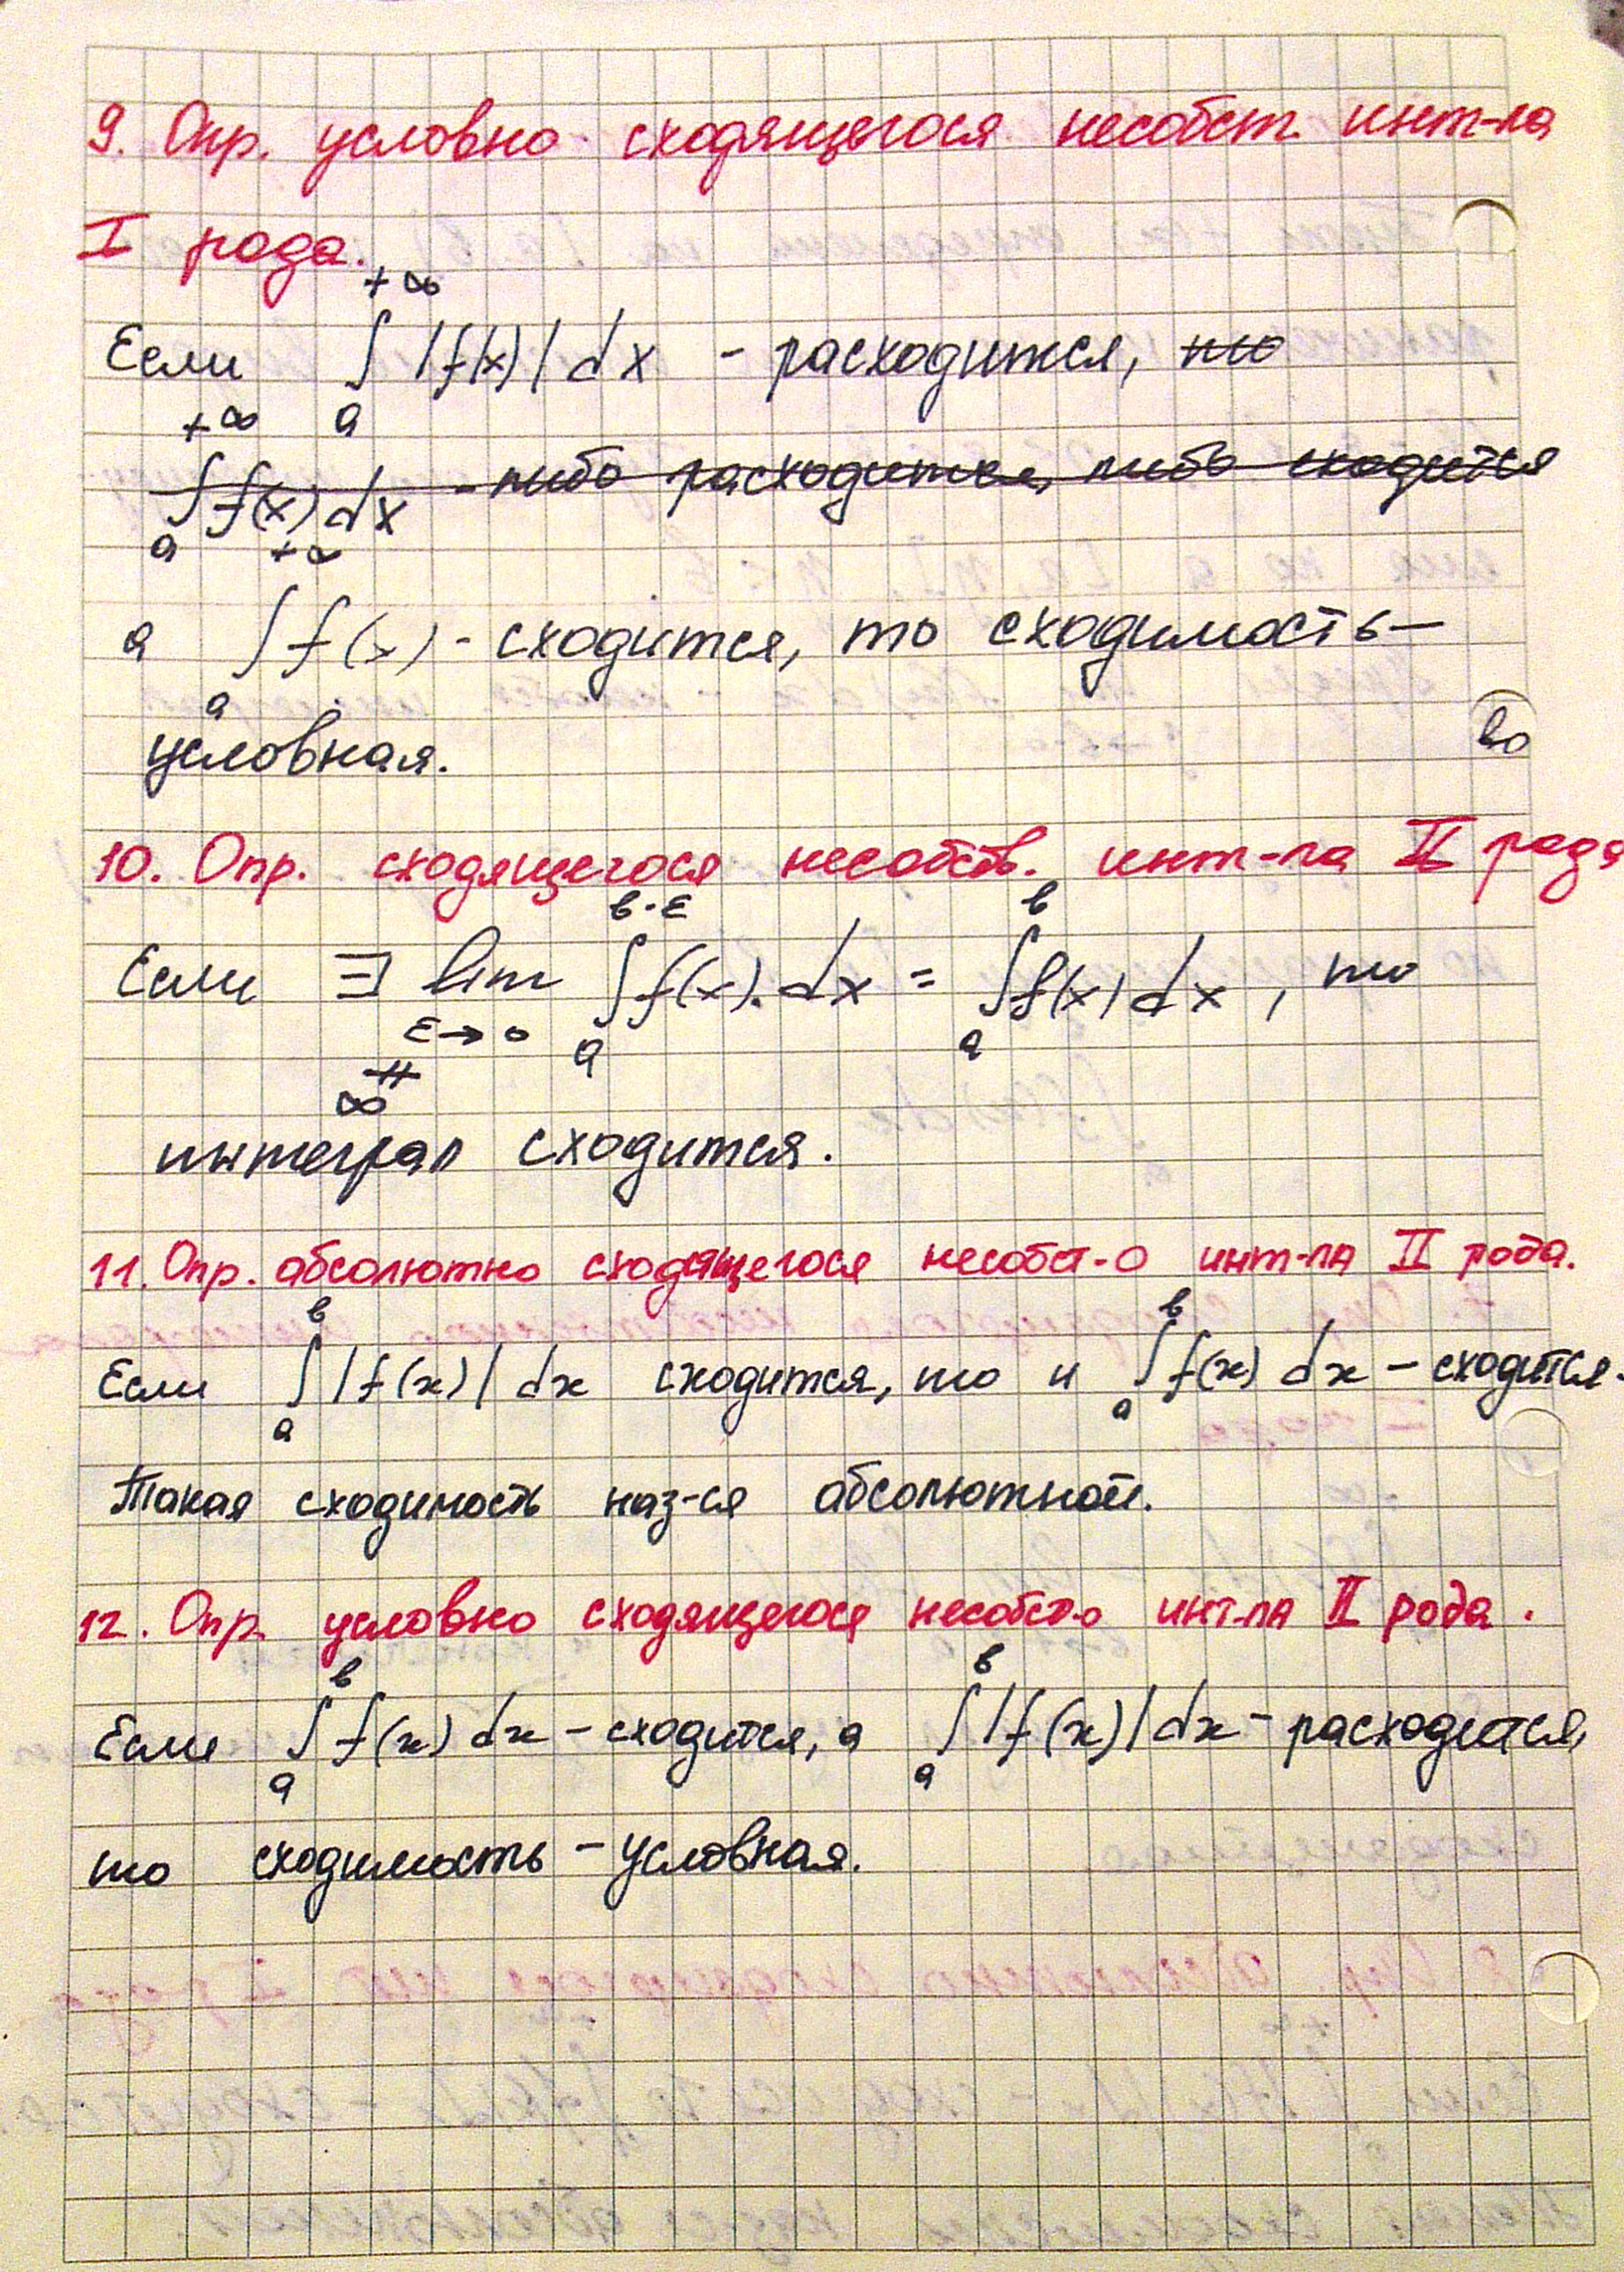 9. Опр. условно сходящегося несобст. инт-ла
I рода.
Если ∫ₐ^{+∞} |f(x)| dx - расходится, ~~то~~
~~∫ₐ^{+∞} f(x) dx - либо расходится, либо сходится~~
а ∫ₐ^{+∞} f(x) - сходится, то сходимость —
условная.
10. Опр. сходящегося несобств. инт-ла II рода
Если ∃ lim_{ε→0} ∫ₐ^{в-ε} f(x).dx = ∫ₐ^{в} f(x) dx, то
∦
∞
интеграл сходится.
11. Опр. абсолютно сходящегося несобст-о инт-ла II рода.
Если ∫ₐ^{в} |f(x)| dx сходится, то и ∫ₐ^{в} f(x) dx — сходится.
Такая сходимость наз-ся абсолютной.
12. Опр. условно сходящегося несобст-о инт-ла II рода.
Если ∫ₐ^{в} f(x) dx — сходится, а ∫ₐ^{в} |f(x)| dx — расходится,
то сходимость — условная.